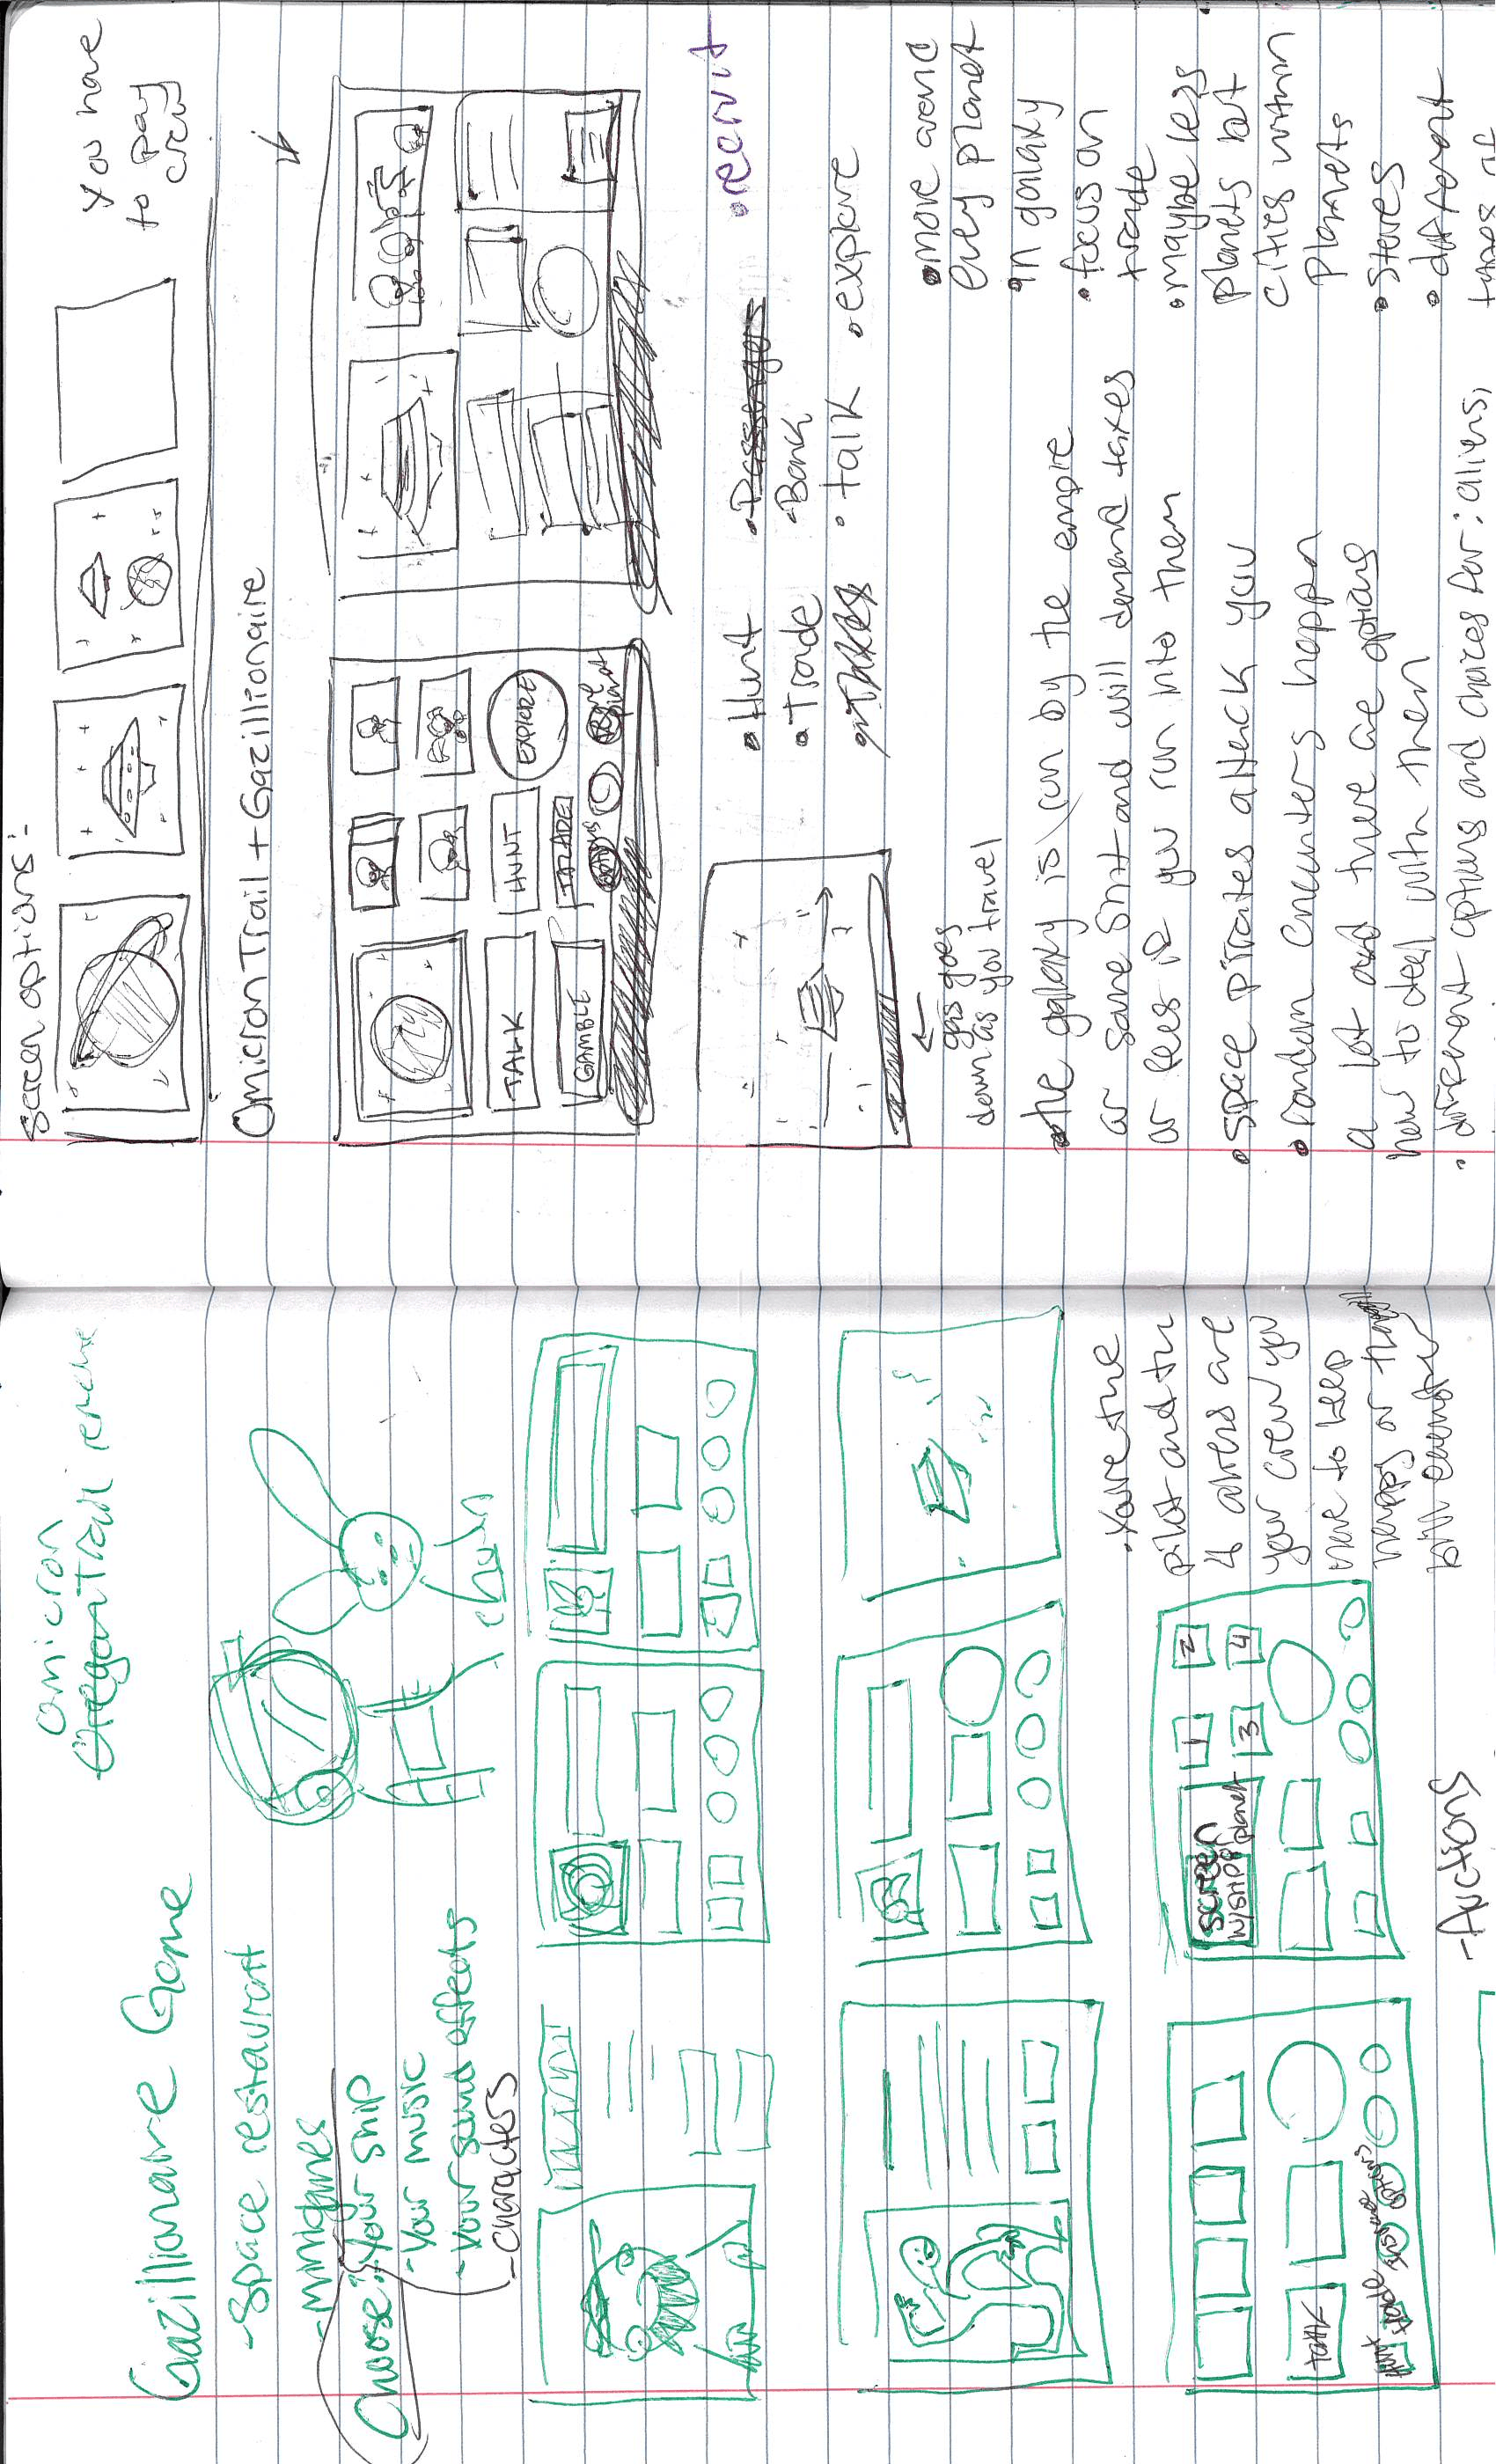 Gazillionaire Game
omicron
Oregon Trail remake
-Space restaurant
-minigames
Choose: Your ship
-Your music
-Your sound affects
-characters
churn
talk
Hunt
trade
screen
w/ship or
planet
1
2
3
4
•You're the
pilot and the
4 others are
your crew you
have to keep
happy or they
will
-Auctions
Screen options:
you have
to pay
crew
Omicron Trail + Gazillionaire
TALK
HUNT
EXPLORE
GAMBLE
TRADE
OOPS
•Hunt
•Passengers
•recruit
•Trade
•Bank
•Taxes
•talk
•explore
gas goes
down as you travel
•move around
every planet
in galaxy
•focus on
trade
•maybe less
planets but
cities within
planets
•Stores
•different
types of
•the galaxy is run by the empire
or some shit and will demand taxes
or fees if you run into them
•space pirates attack you
•random encounters happen
a lot and there are options
how to deal with them
•different options and choices for: aliens,